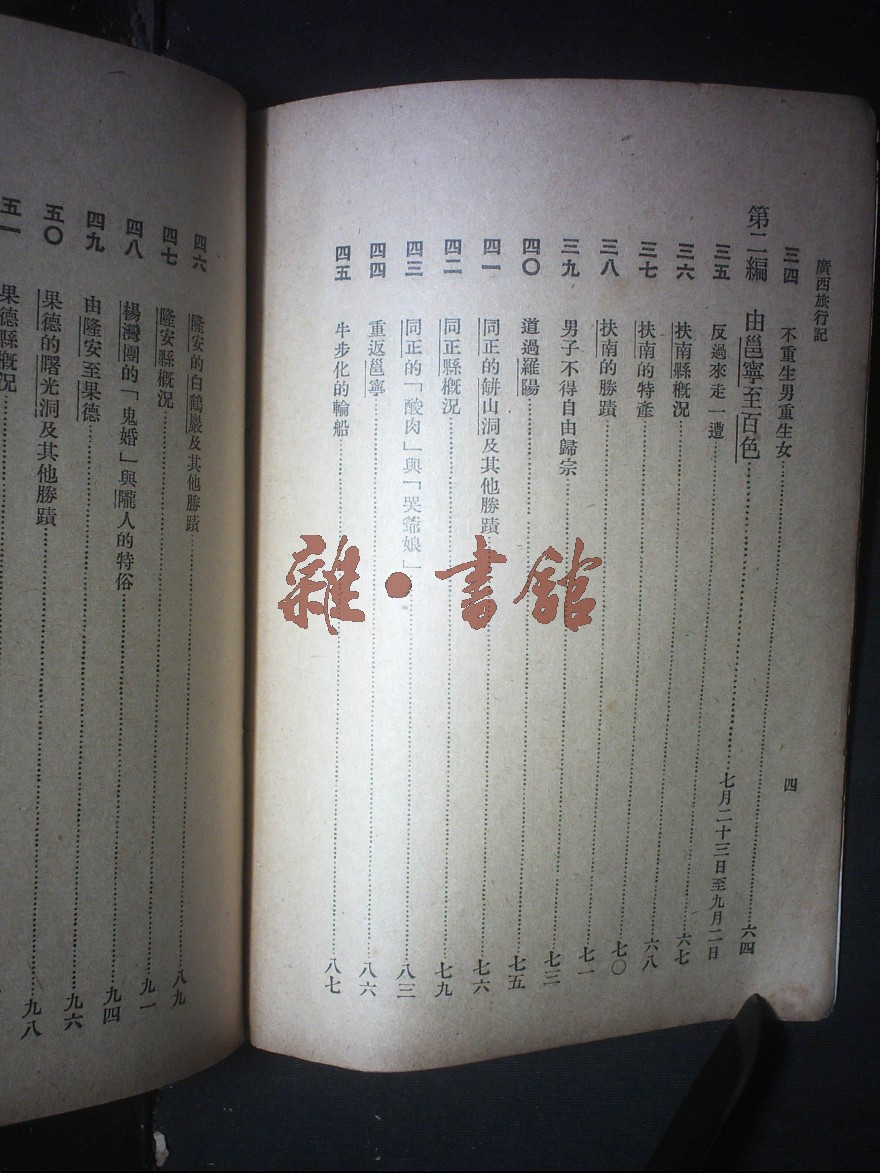 廣西旅行記 四
三四 不重生男重生女……六四
第二編 由邕寧至百色……七月二十三日至九月二日
三五 反過來走一遭……六七
三六 扶南縣概況……六八
三七 扶南的特產……七〇
三八 扶南的勝蹟……七一
三九 男子不得自由歸宗……七三
四〇 道過羅陽……七五
四一 同正的𩩍山洞及其他勝蹟……七六
四二 同正縣概況……七九
四三 同正的「酸肉」與「哭爺娘」……八三
四四 重返邕寧……八六
四五 牛步化的輪船……八七
四六 隆安的白鶴巖及其他勝蹟……八九
四七 隆安縣概況……九一
四八 楊灣團的「鬼婚」與隴人的特俗……九四
四九 由隆安至果德……九六
五〇 果德的曙光洞及其他勝蹟……九八
五一 果德縣概況……
雜·書館